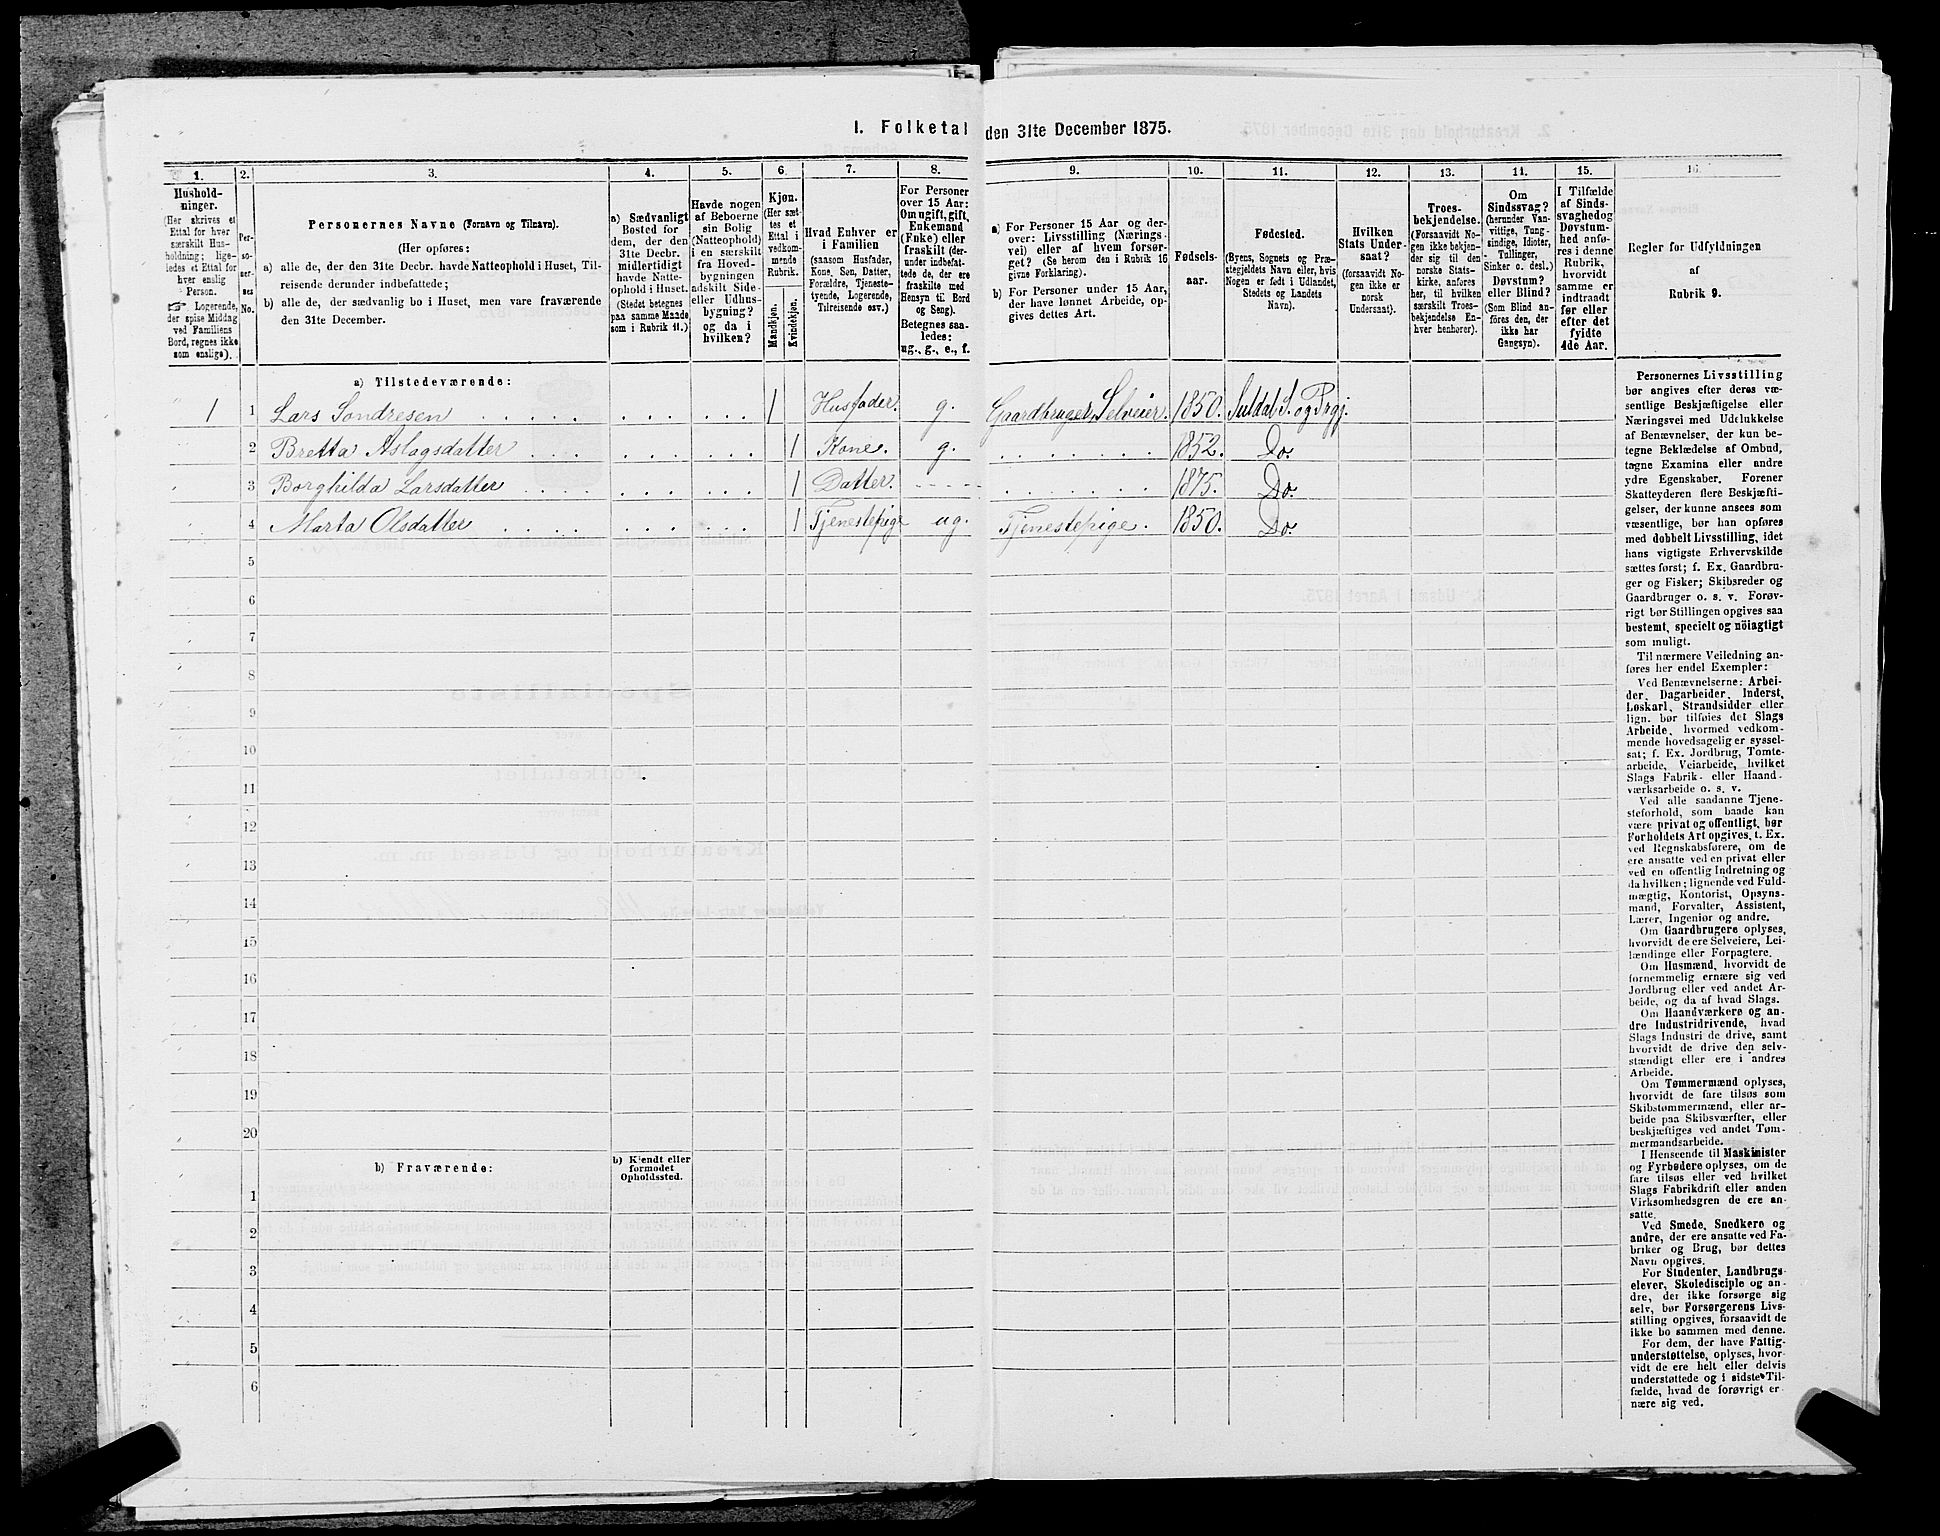 I. Folketal den 31te December 1875.
1. 2. 3. 4. 5. 6. 7. 8. 9. 10. 11. 12. 13. 14. 15. 16.
Hushold-
ninger.
(Her skrives et
Ettal for hver
særskilt Hus-
holdning; lige-
ledes et Ettal for
hver enslig
Person.
☞ Logerende,
der spise Middag
ved Familiens
Bord, regnes ikke
som enslige).
Per-
so-
ner-
nes
No.
Personernes Navne (Fornavn og Tilnavn).
(Her opføres:
a) alle de, der den 31te Decbr. havde Natteophold i Huset, Til-
reisende derunder indbefattede;
b) alle de, der sædvanlig bo i Huset, men vare fraværende
den 31te December.
a) Sædvanligt
Bosted for
dem, der den
31te Decbr.
midlertidigt
havde Natte-
ophold i Huset.
(Stedet betegnes
paa samme Maade
som i Rubrik 11.)
Havde nogen
af Beboerne
sin Bolig
(Natteophold)
i en særskilt
fra Hoved-
bygningen
adskilt Side-
eller Udhus-
bygning?
og da i
hvilken?
Kjøn.
(Her sæt-
tes et
Ettal i
vedkom-
mende
Rubrik.
Mandkjøn.
Kvindekjøn.
Hvad Enhver er
i Familien
(saasom Husfader,
Kone, Søn, Datter,
Forældre, Tjeneste-
tyende, Logerende,
Tilreisende osv.)
For Personer
over 15 Aar:
Om ugift, gift,
Enkemand
(Enke) eller
fraskilt (der-
under indbefat-
tede de, der ere
fraskilte med
Hensyn til Bord
og Seng).
Betegnes saa-
ledes:
ug., g., e., f.
a) For Personer 15 Aar og der-
over: Livsstilling (Nærings-
vei) eller af hvem forsør-
get? (Se herom den i Rubrik 16
givne Forklaring).
b) For Personer under 15 Aar,
der have lønnet Arbeide, op-
gives dettes Art.
Fødsels-
aar.
Fødested.
(Byens, Sognets og Præ-
stegjeldets Navn eller, hvis
Nogen er født i Udlandet,
Stedets og Landets
Navn).
Hvilken
Stats Under-
saat?
(forsaavidt No-
gen ikke er
norsk
Undersaat).
Troes-
bekjendelse.
(Forsaavidt No-
gen ikke bekjen-
der sig til den
norske Stats-
kirke, anføres
her, til hvilken
særskilt Troes-
bekjendelse En-
hver henhører).
Om
Sindssvag?
(herunder Van-
vittige, Tung-
sindige, Idioter,
Tullinger,
Sinker o. desl.)
Døvstum?
eller Blind?
(Som Blind an-
føres den, der
ikke har
Gangsyn).
I Tilfælde
af Sinds-
svaghed og
Døvstum-
hed anfø-
res i denne
Rubrik,
hvorvidt
samme er
indtraadt
før eller
efter det
fyldte
4de Aar.
Regler for Udfyldningen
af
Rubrik 9.
a) Tilstedeværende:
1 1 Lars Sondresen 1 Husfader. g. Gaardbruger, Selveier. 1850. Suldal S. og Prgj.
2 Bretta Aslagsdatter 1 Kone. g. 1852. Do.
3 Borghilda Larsdatter 1 Datter. 1875. Do.
4 Marta Olsdatter 1 Tjenestepige ug. Tjenestepige. 1850. Do.
5
6
7
8
9
10
11
12
13
14
15
16
17
18
19
20
b) Fraværende:
b) Kjendt eller
formodet
Opholdssted.
1
2
3
4
5
6
Personernes Livsstilling
bør angives efter deres væ-
sentlige Beskjæftigelse eller
Næringsvei med Udelukkelse
af Benævnelser, der kun be-
tegne Beklædelse af Ombud,
tagne Examina eller andre
ydre Egenskaber. Forener
Skatteyderen flere Beskjæfti-
gelser, der kunne ansees som
væsentlige, bør han opføres
med dobbelt Livsstilling, idet
hans vigtigste Erhvervskilde
sættes først; f. Ex. Gaardbru-
ger og Fisker; Skibsreder og
Gaardbruger o. s. v. Forøv-
rigt bør Stillingen opgives saa
bestemt, specielt og nöiagtigt
som muligt.
Til nærmere Veiledning an-
føres her endel Exempler:
Ved Benævnelserne: Arbei-
der, Dagarbeider, Inderst,
Løskarl, Strandsidder eller
lign. bør tilføies det Slags
Arbeide, hvormed vedkom-
mende hovedsagelig er syssel-
sat; f. Ex. Jordbrug, Tomte-
arbeide, Veiarbeide, hvilket
Slags Fabrik- eller Haand-
værksarbeide o. s. v.
Ved alle saadanne Tjene-
steforhold, som baade kan
være privat og offentligt, bør
Forholdets Art opgives, t. Ex.
ved Regnskabsførere, om de
ere ansatte ved en privat eller
ved en offentlig Indretning og
da hvilken; lignende ved Fuld-
mægtig, Kontorist, Opsyns-
mand, Forvalter, Assistent,
Lærer, Ingeniør og andre.
Om Gaardbrugere oplyses,
hvorvidt de ere Selveiere, Lei-
lændinge eller Forpagtere.
Om Husmænd, hvorvidt de
fornemmelig ernære sig ved
Jordbrug eller ved andet Ar-
beide, og da af hvad Slags.
Om Haandværkere og an-
dre Industridrivende, hvad
Slags Industri de drive, samt
hvorvidt de drive den selv-
stændigt eller ere i andres
Arbeide.
Om Tømmermænd oplyses,
hvorvidt de fare tilsøs som
Skibstømmermænd, eller ar-
beide paa Skibsværfter, eller
beskjæftiges ved andet Tøm-
mermandsarbeide.
I Henseende til Maskinister
og Fyrbødere oplyses, om de
fare tilsøs eller ved hvilket
Slags Fabrikdrift eller anden
Virksomhedsgren de ere an-
satte.
Ved Smede, Snedkere og
andre, der ere ansatte ved Fa-
briker og Brug, bør dettes
Navn opgives.
For Studenter, Landbrugs-
elever, Skoledisciple og an-
dre, der ikke forsørge sig
selv, bør Forsørgerens Livs-
stilling opgives, forsaavidt de
ikke bo sammen med denne.
For dem, der have Fattig-
understøttelse, oplyses, hvor-
vidt de ere helt eller delvis
understøttede og i sidste Til-
fælde, hvad de forøvrigt er-
nære sig ved.